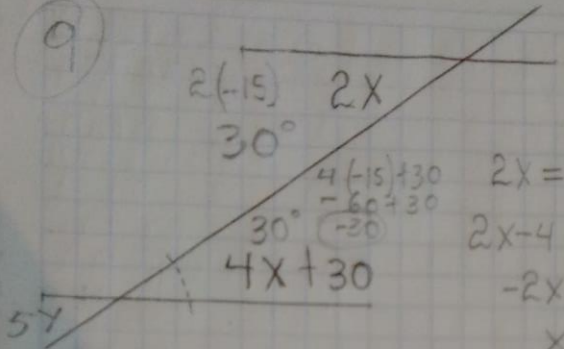 9
2(-15) 2x
30°
4(-15)+30
-60+30
30° -30
4x+30
2x=
2x-4
-2x
x
5y